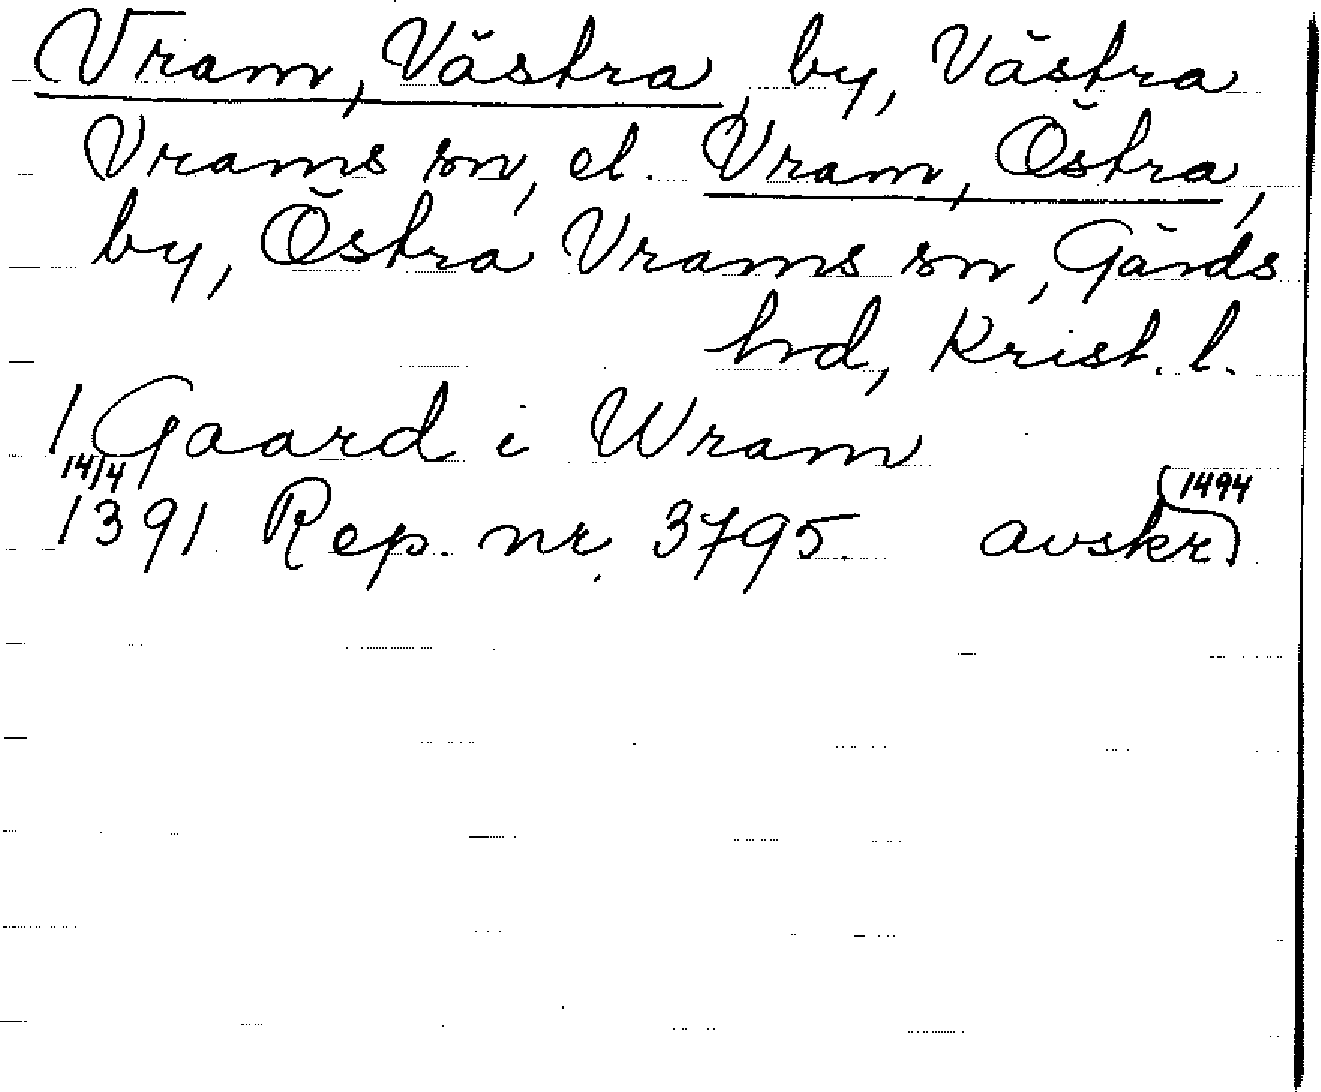 Vram, Västra, by, Västra
Vrams sn, el. Vram, Östra,
by, Östra Vrams sn, Gärds
hd, Krist. l.
1 Gaard i Wram
14/4 1494
1391 Rep. nr. 3795. avskr)